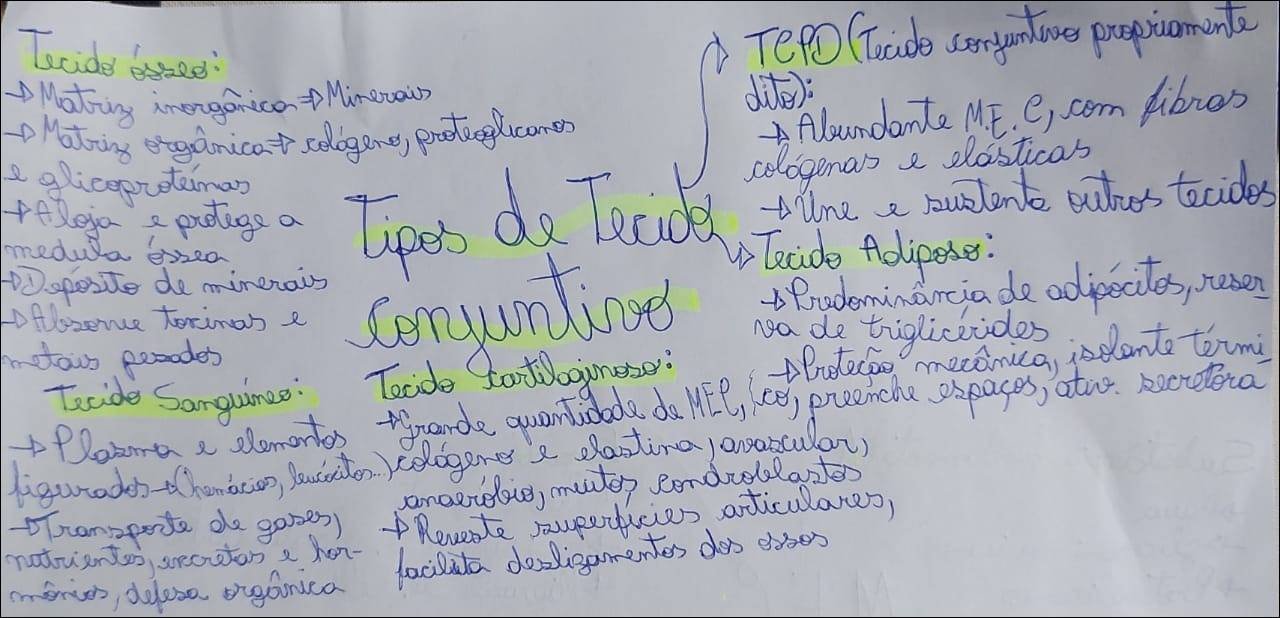 Tipos de Tecido
conjuntivo
Tecido ósseo:
→ Matriz inorgânica → Minerais
→ Matriz orgânica → colágeno, proteoglicanos
e glicoproteínas
→ Aloja e protege a
medula óssea
→ Depósito de minerais
→ Absorve toxinas e
metais pesados
Tecido Sanguíneo:
→ Plasma e elementos
figurados → (hemácias, leucócitos...)
→ Transporte de gases,
nutrientes, excretas e hor-
mônios, defesa orgânica
Tecido Cartilaginoso:
→ Grande quantidade de MEC,
colágeno e elastina, avascular,
anaeróbio, muitos condroblastos
→ Reveste superfícies articulares,
facilita deslizamentos dos ossos
→ TCPD (Tecido conjuntivo propriamente
dito):
→ Abundante M.E.C, com fibras
colágenas e elásticas
→ Une e sustenta outros tecidos
→ Tecido Adiposo:
→ Predominância de adipócitos, reser-
va de triglicérides
→ Proteção mecânica, isolante térmi-
co, preenche espaços, ativ. secretora